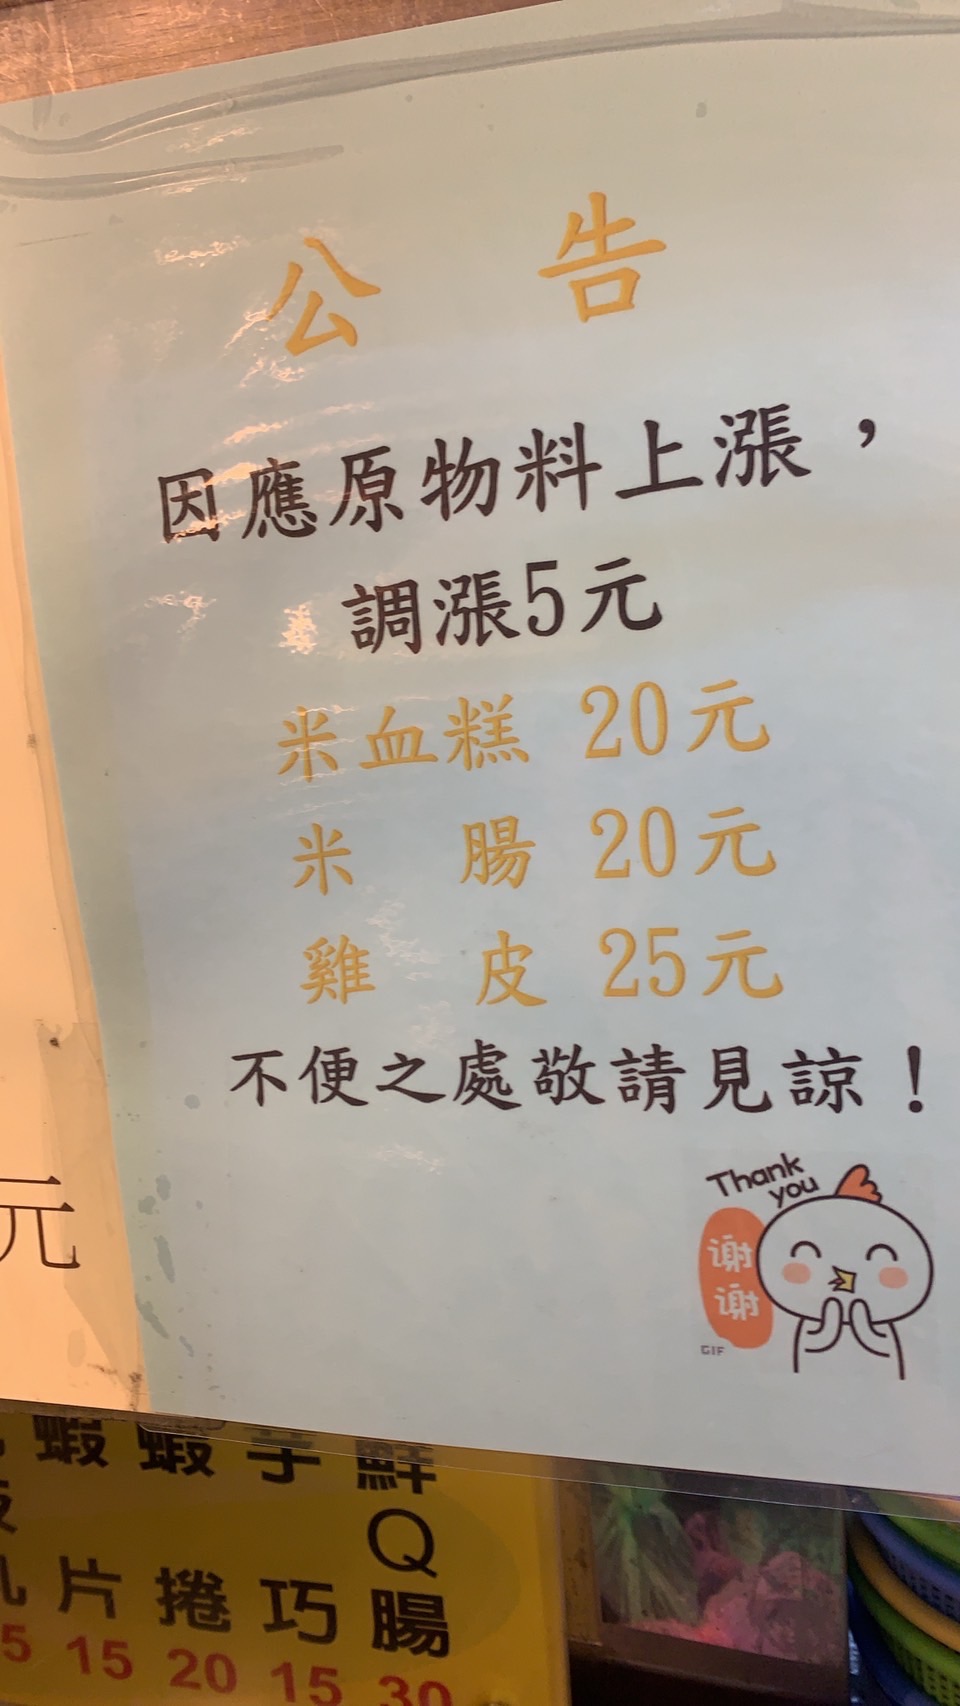 公告
因應原物料上漲，
調漲5元
米血糕 20元
米腸 20元
雞皮 25元
不便之處敬請見諒！
Thank you
谢谢
GIF
元
蝦片 15
蝦捲 20
芋巧 15
鮮Q腸 30